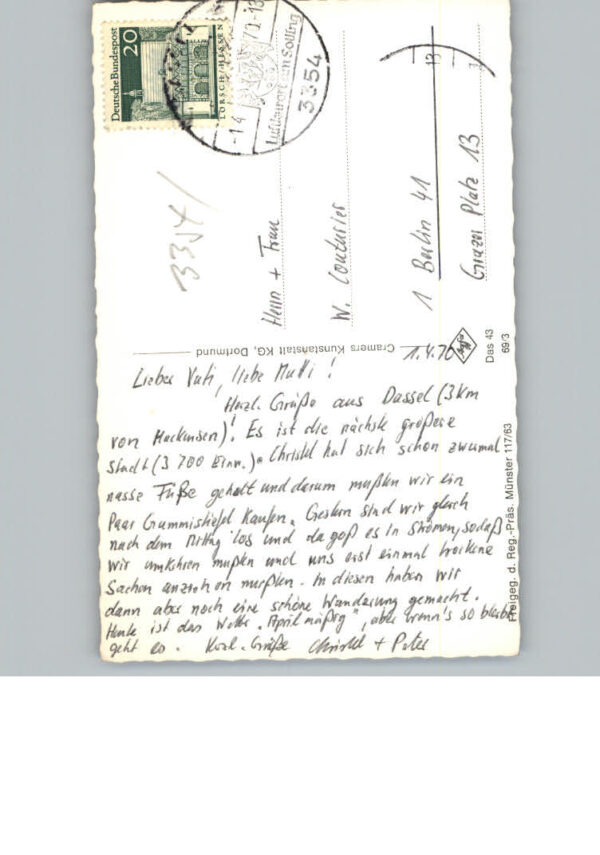 Deutsche Bundespost
20
LORSCH/HESSEN
Luftkurort am Solling
3354
-1.4.70-18
3354/
Herr + Frau
W. Couturier
1 Berlin 41
Grazer Platz 13
13
Cramers Kunstanstalt KG, Dortmund
Das 43
69/3
Freigeg. d. Reg.-Präs. Münster 117/63
1.4.70
Lieber Vati, liebe Mutti!
Herzl. Grüße aus Dassel (3 km
von Mackensen)! Es ist die nächste größere
Stadt (3 700 Einw.). Christel hat sich schon zweimal
nasse Füße geholt und darum mußten wir ein
Paar Gummistiefel kaufen. Gestern sind wir gleich
nach dem Mittag los und da goß es in Strömen, sodaß
wir umkehren mußten und uns erst einmal trockene
Sachen anziehen mußten. In diesen haben wir
dann aber noch eine schöne Wanderung gemacht.
Heute ist das Wetter "Aprilmäßig", aber wenn's so bleibt,
geht es. Herzl. Grüße Christel + Peter